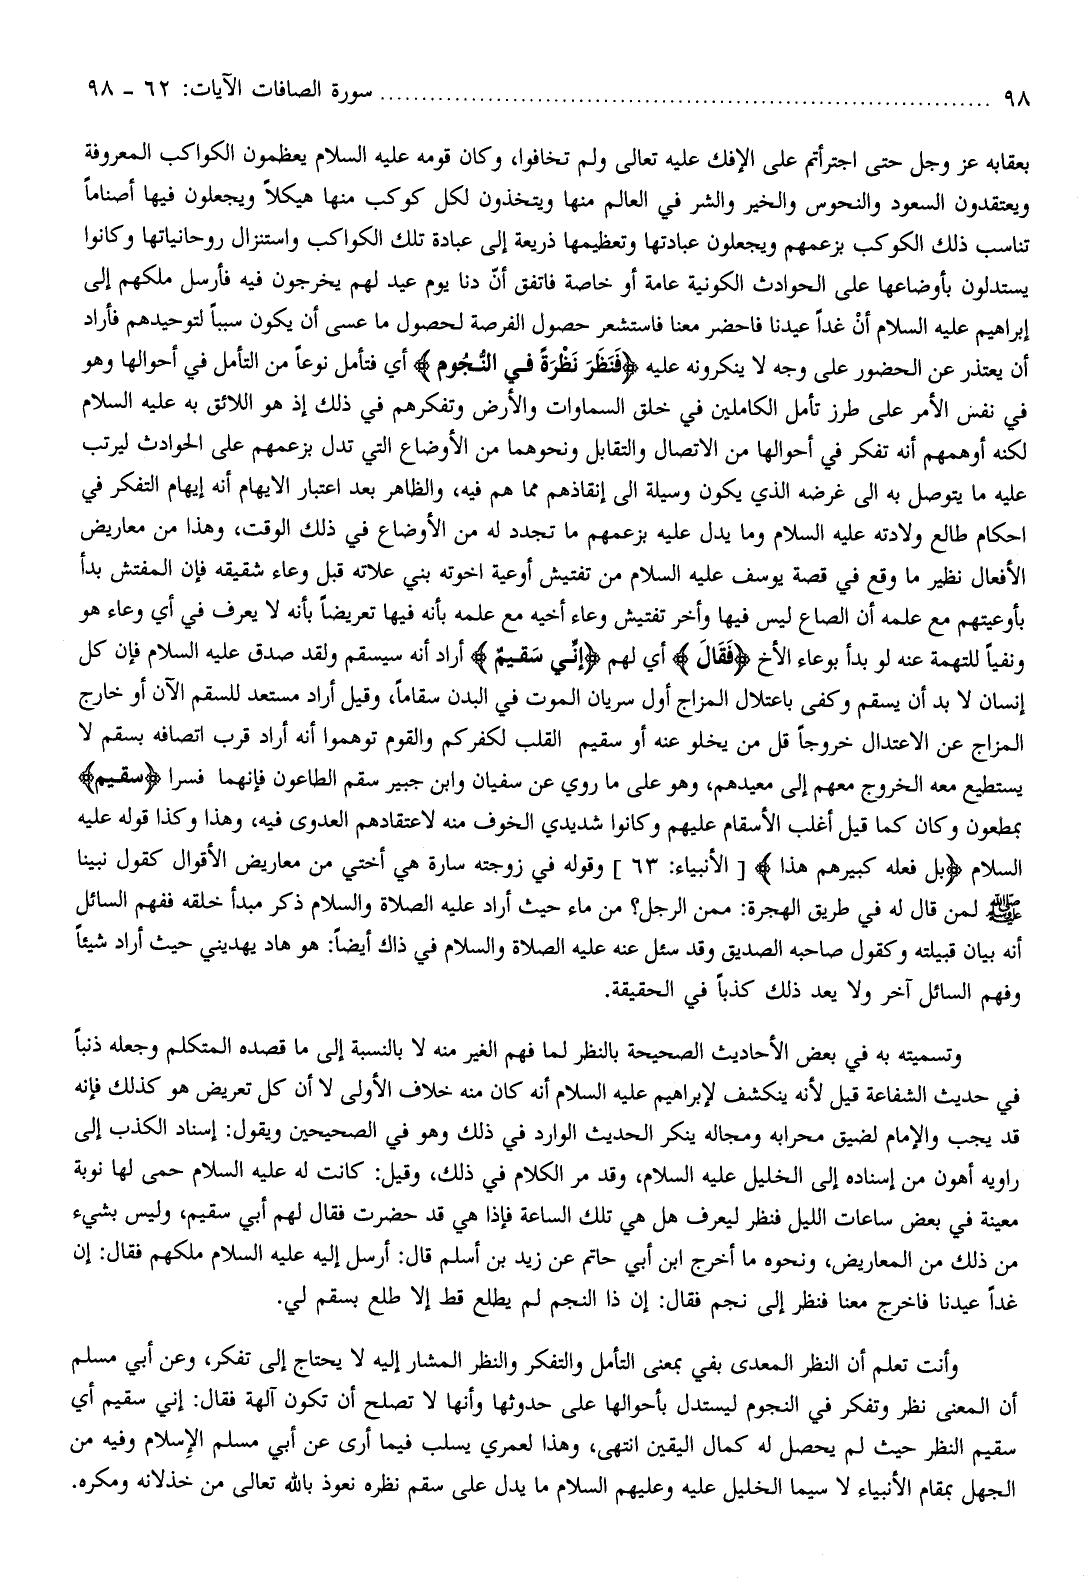 ٩٨ ............................................................ سورة الصافات الآيات: ٦٢ - ٩٨
بعقابه عز وجل حتى اجترأتم على الإفك عليه تعالى ولم تخافوا، وكان قومه عليه السلام يعظمون الكواكب المعروفة
ويعتقدون السعود والنحوس والخير والشر في العالم منها ويتخذون لكل كوكب منها هيكلاً ويجعلون فيها أصناماً
تناسب ذلك الكوكب بزعمهم ويجعلون عبادتها وتعظيمها ذريعة إلى عبادة تلك الكواكب واستنزال روحانياتها وكانوا
يستدلون بأوضاعها على الحوادث الكونية عامة أو خاصة فاتفق أنّ دنا يوم عيد لهم يخرجون فيه فأرسل ملكهم إلى
إبراهيم عليه السلام أنْ غداً عيدنا فاحضر معنا فاستشعر حصول الفرصة لحصول ما عسى أن يكون سبباً لتوحيدهم فأراد
أن يعتذر عن الحضور على وجه لا ينكرونه عليه ﴿فَنَظَرَ نَظْرَةً في النُّجُوم﴾ أي فتأمل نوعاً من التأمل في أحوالها وهو
في نفس الأمر على طرز تأمل الكاملين في خلق السماوات والأرض وتفكرهم في ذلك إذ هو اللائق به عليه السلام
لكنه أوهمهم أنه تفكر في أحوالها من الاتصال والتقابل ونحوهما من الأوضاع التي تدل بزعمهم على الحوادث ليرتب
عليه ما يتوصل به الى غرضه الذي يكون وسيلة الى إنقاذهم مما هم فيه، والظاهر بعد اعتبار الايهام أنه إيهام التفكر في
احكام طالع ولادته عليه السلام وما يدل عليه بزعمهم ما تجدد له من الأوضاع في ذلك الوقت، وهذا من معاريض
الأفعال نظير ما وقع في قصة يوسف عليه السلام من تفتيش أوعية اخوته بني علاته قبل وعاء شقيقه فإن المفتش بدأ
بأوعيتهم مع علمه أن الصاع ليس فيها وأخر تفتيش وعاء أخيه مع علمه بأنه فيها تعريضاً بأنه لا يعرف في أي وعاء هو
ونفياً للتهمة عنه لو بدأ بوعاء الأخ ﴿فَقَالَ﴾ أي لهم ﴿إنِّي سَقيمٌ﴾ أراد أنه سيسقم ولقد صدق عليه السلام فإن كل
إنسان لا بد أن يسقم وكفى باعتلال المزاج أول سريان الموت في البدن سقاماً، وقيل أراد مستعد للسقم الآن أو خارج
المزاج عن الاعتدال خروجاً قل من يخلو عنه أو سقيم القلب لكفركم والقوم توهموا أنه أراد قرب اتصافه بسقم لا
يستطيع معه الخروج معهم إلى معيدهم، وهو على ما روي عن سفيان وابن جبير سقم الطاعون فإنهما فسرا ﴿سقيم﴾
بمطعون وكان كما قيل أغلب الأسقام عليهم وكانوا شديدي الخوف منه لاعتقادهم العدوى فيه، وهذا وكذا قوله عليه
السلام ﴿بل فعله كبيرهم هذا﴾ [الأنبياء: ٦٣] وقوله في زوجته سارة هي أختي من معاريض الأقوال كقول نبينا
ﷺ لمن قال له في طريق الهجرة: ممن الرجل؟ من ماء حيث أراد عليه الصلاة والسلام ذكر مبدأ خلقه ففهم السائل
أنه بيان قبيلته وكقول صاحبه الصديق وقد سئل عنه عليه الصلاة والسلام في ذاك أيضاً: هو هاد يهديني حيث أراد شيئاً
وفهم السائل آخر ولا يعد ذلك كذباً في الحقيقة.
وتسميته به في بعض الأحاديث الصحيحة بالنظر لما فهم الغير منه لا بالنسبة إلى ما قصده المتكلم وجعله ذنباً
في حديث الشفاعة قيل لأنه ينكشف لإبراهيم عليه السلام أنه كان منه خلاف الأولى لا أن كل تعريض هو كذلك فإنه
قد يجب والإمام لضيق محرابه ومجاله ينكر الحديث الوارد في ذلك وهو في الصحيحين ويقول: إسناد الكذب إلى
راويه أهون من إسناده إلى الخليل عليه السلام، وقد مر الكلام في ذلك، وقيل: كانت له عليه السلام حمى لها نوبة
معينة في بعض ساعات الليل فنظر ليعرف هل هي تلك الساعة فإذا هي قد حضرت فقال لهم أبي سقيم، وليس بشيء
من ذلك من المعاريض، ونحوه ما أخرج ابن أبي حاتم عن زيد بن أسلم قال: أرسل إليه عليه السلام ملكهم فقال: إن
غداً عيدنا فاخرج معنا فنظر إلى نجم فقال: إن ذا النجم لم يطلع قط إلا طلع بسقم لي.
وأنت تعلم أن النظر المعدى بفي بمعنى التأمل والتفكر والنظر المشار إليه لا يحتاج إلى تفكر، وعن أبي مسلم
أن المعنى نظر وتفكر في النجوم ليستدل بأحوالها على حدوثها وأنها لا تصلح أن تكون آلهة فقال: إني سقيم أي
سقيم النظر حيث لم يحصل له كمال اليقين انتهى، وهذا لعمري يسلب فيما أرى عن أبي مسلم الإسلام وفيه من
الجهل بمقام الأنبياء لا سيما الخليل عليه وعليهم السلام ما يدل على سقم نظره نعوذ بالله تعالى من خذلانه ومكره.